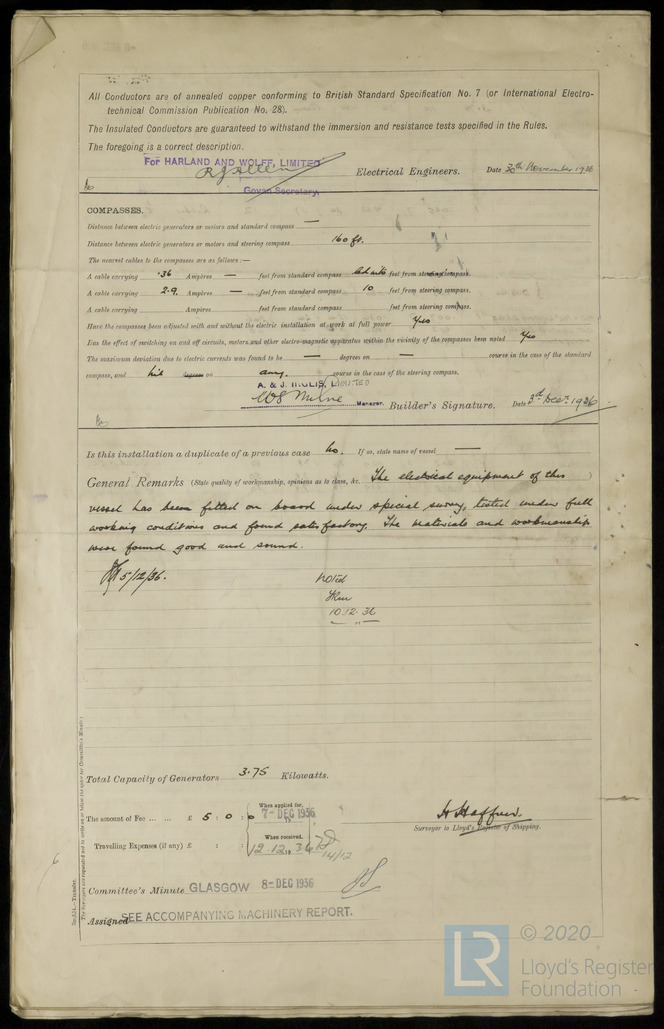 All Conductors are of annealed copper conforming to British Standard Specification No. 7 (or International Electro-
technical Commission Publication No. 28).
The Insulated Conductors are guaranteed to withstand the immersion and resistance tests specified in the Rules.
The foregoing is a correct description.
For HARLAND AND WOLFF, LIMITED
Electrical Engineers. Date 30th November 1936
Govan Secretary.
COMPASSES.
Distance between electric generators or motors and standard compass —
Distance between electric generators or motors and steering compass 160 ft.
The nearest cables to the compasses are as follows:—
A cable carrying .36 Ampères — feet from standard compass feet from steering compass.
A cable carrying 2.9. Ampères — feet from standard compass 10 feet from steering compass.
A cable carrying Ampères feet from standard compass feet from steering compass.
Have the compasses been adjusted with and without the electric installation at work at full power Yes
Has the effect of switching on and off circuits, motors and other electro-magnetic apparatus within the vicinity of the compasses been noted Yes
The maximum deviation due to electric currents was found to be — degrees on — course in the case of the standard
compass, and nil degrees on any. course in the case of the steering compass.
A. & J. INGLIS, LIMITED
WS Milne Manager. Builder's Signature. Date 3rd Decr. 1936
Is this installation a duplicate of a previous case No. If so, state name of vessel —
General Remarks (State quality of workmanship, opinions as to class, &c. The electrical equipment of this
vessel has been fitted on board under special survey, tested under full
working conditions and found satisfactory. The materials and workmanship
were found good and sound.
5/12/36.
Noted
10.12.36
Total Capacity of Generators 3.75 Kilowatts.
The amount of Fee ... ... £ 5 : 0 : 0 When applied for, 7-DEC 1936
Travelling Expenses (if any) £ : : When received, 12.12.36 14/12
Surveyor to Lloyd's Register of Shipping.
Committee's Minute GLASGOW 8-DEC 1936
Assigned SEE ACCOMPANYING MACHINERY REPORT.
LR © 2020
Lloyd's Register
Foundation